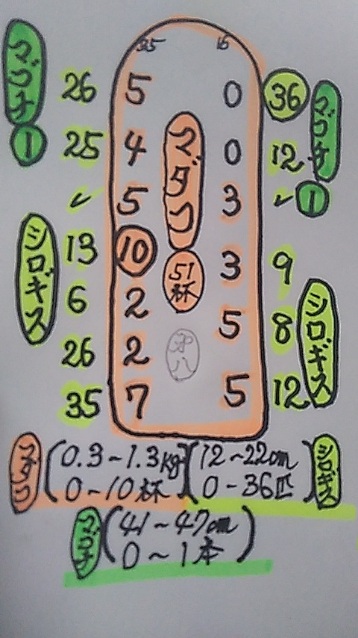 35 16
マゴチ 26 5 0 36 マゴチ
1 25 4 マダコ 0 12
✓ 5 3 ✓ 1
シロギス 13 10 51杯 3 9 シロギス
6 2 5 8
26 2 八
35 7 5 12
マダコ (0.3~1.3kg 0~10杯) (12~22cm 0~36匹) シロギス
マゴチ (41~47cm 0~1本)